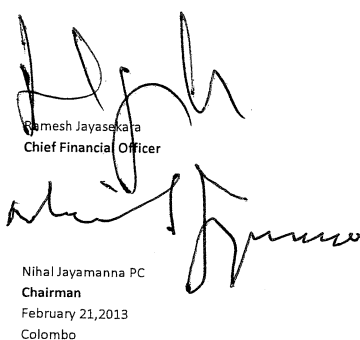 Ramesh Jayasekara
Chief Financial Officer
Nihal Jayamanna PC
Chairman
February 21,2013
Colombo